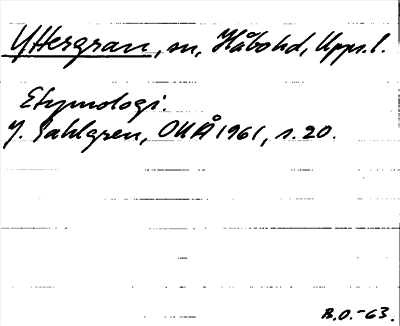 Yttergran, sn, Håbohd, Upps.l.
Etymologi.
J. Sahlgren, OUÅ 1961, s. 20.
B.O.-63.